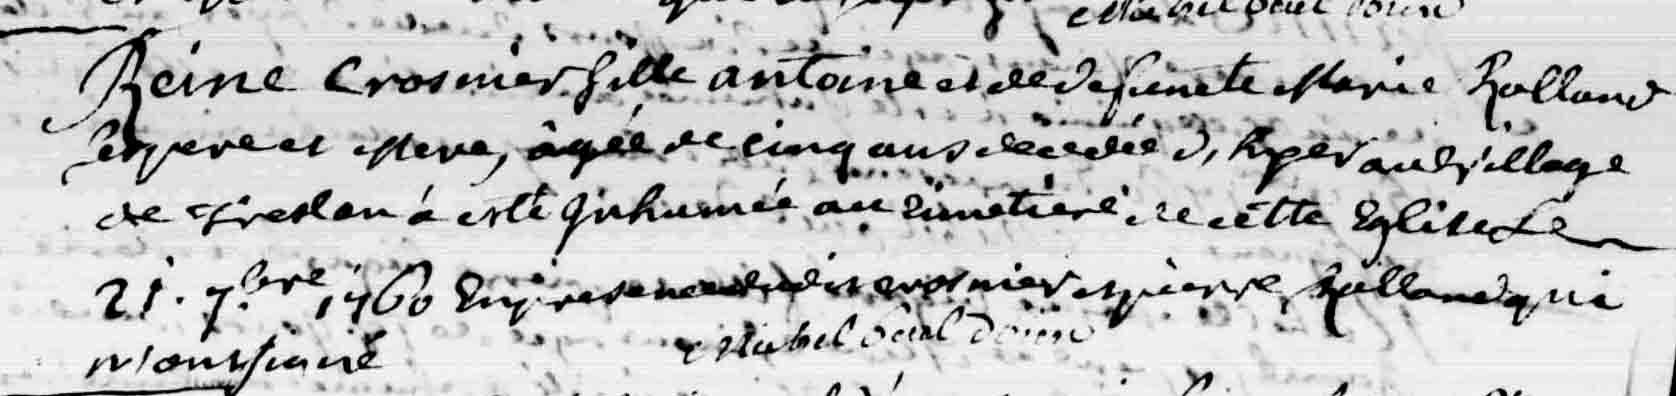 Reine Crosnier fille antoine et de defuncte Marie Rolland
ses pere et Mere, âgée de cinq ans decedée d'hyer au village
de à esté Inhumée au cimetiere de cette Eglise Le
21. 7.bre 1760 En presence dudit crosnier et pierre Rolland qui
n'ont signé